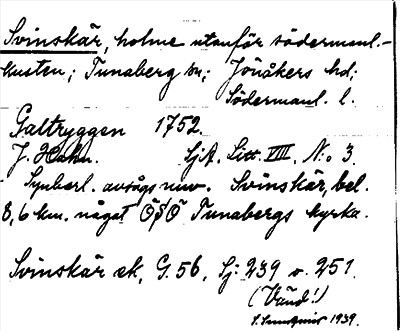 Svinskär, holme utanför södermanl.-
kusten; Tunaberg sn; Jönåkers hd;
Södermanl. l.
Galtryggen 1752.
J. Hahn. SjA. Litt. VIII, No 3.
Synberl. avsågs nuv. Svinskär, bel.
8,6 km. något ÖSÖ Tunabergs kyrka.
Svinskär ek, G. 56, Sj: 239 o. 251.
(Vänd!)
1939.